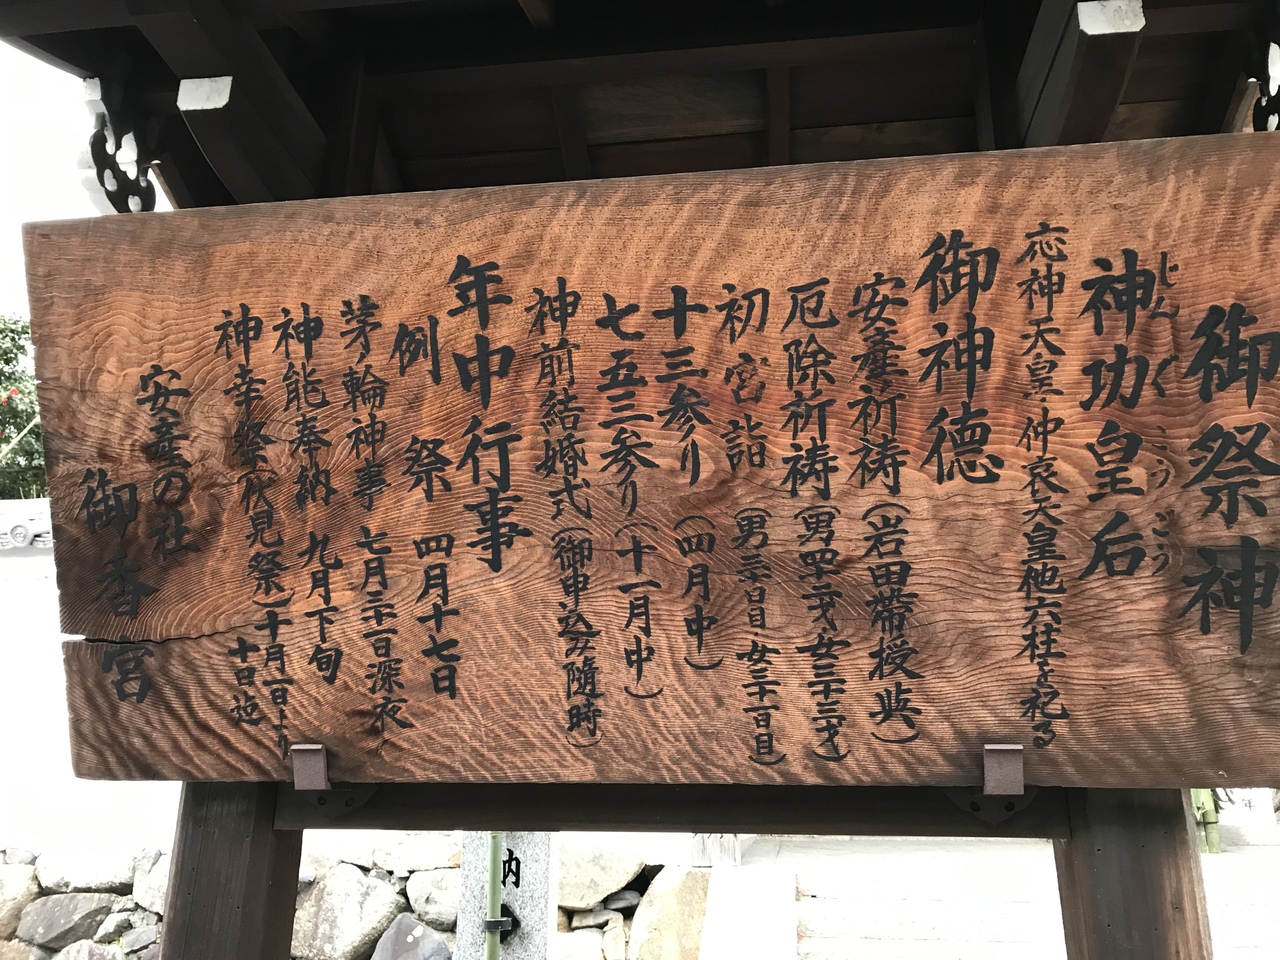 御祭神
神功皇后
じんぐうこうごう
応神天皇・仲哀天皇他六柱を祀る
御神徳
安産祈祷(岩田帯授与)
厄除祈祷(男四十二才女三十三才)
初宮詣(男三十日目・女三十一日目)
十三参り(四月中)
七五三参り(十一月中)
神前結婚式(御申込み隨時)
年中行事
例祭 四月十七日
茅ノ輪神事 七月三十一日深夜
神能奉納 九月下旬
神幸祭(伏見祭)十月一日より
十日迄
安産の社
御香宮
納